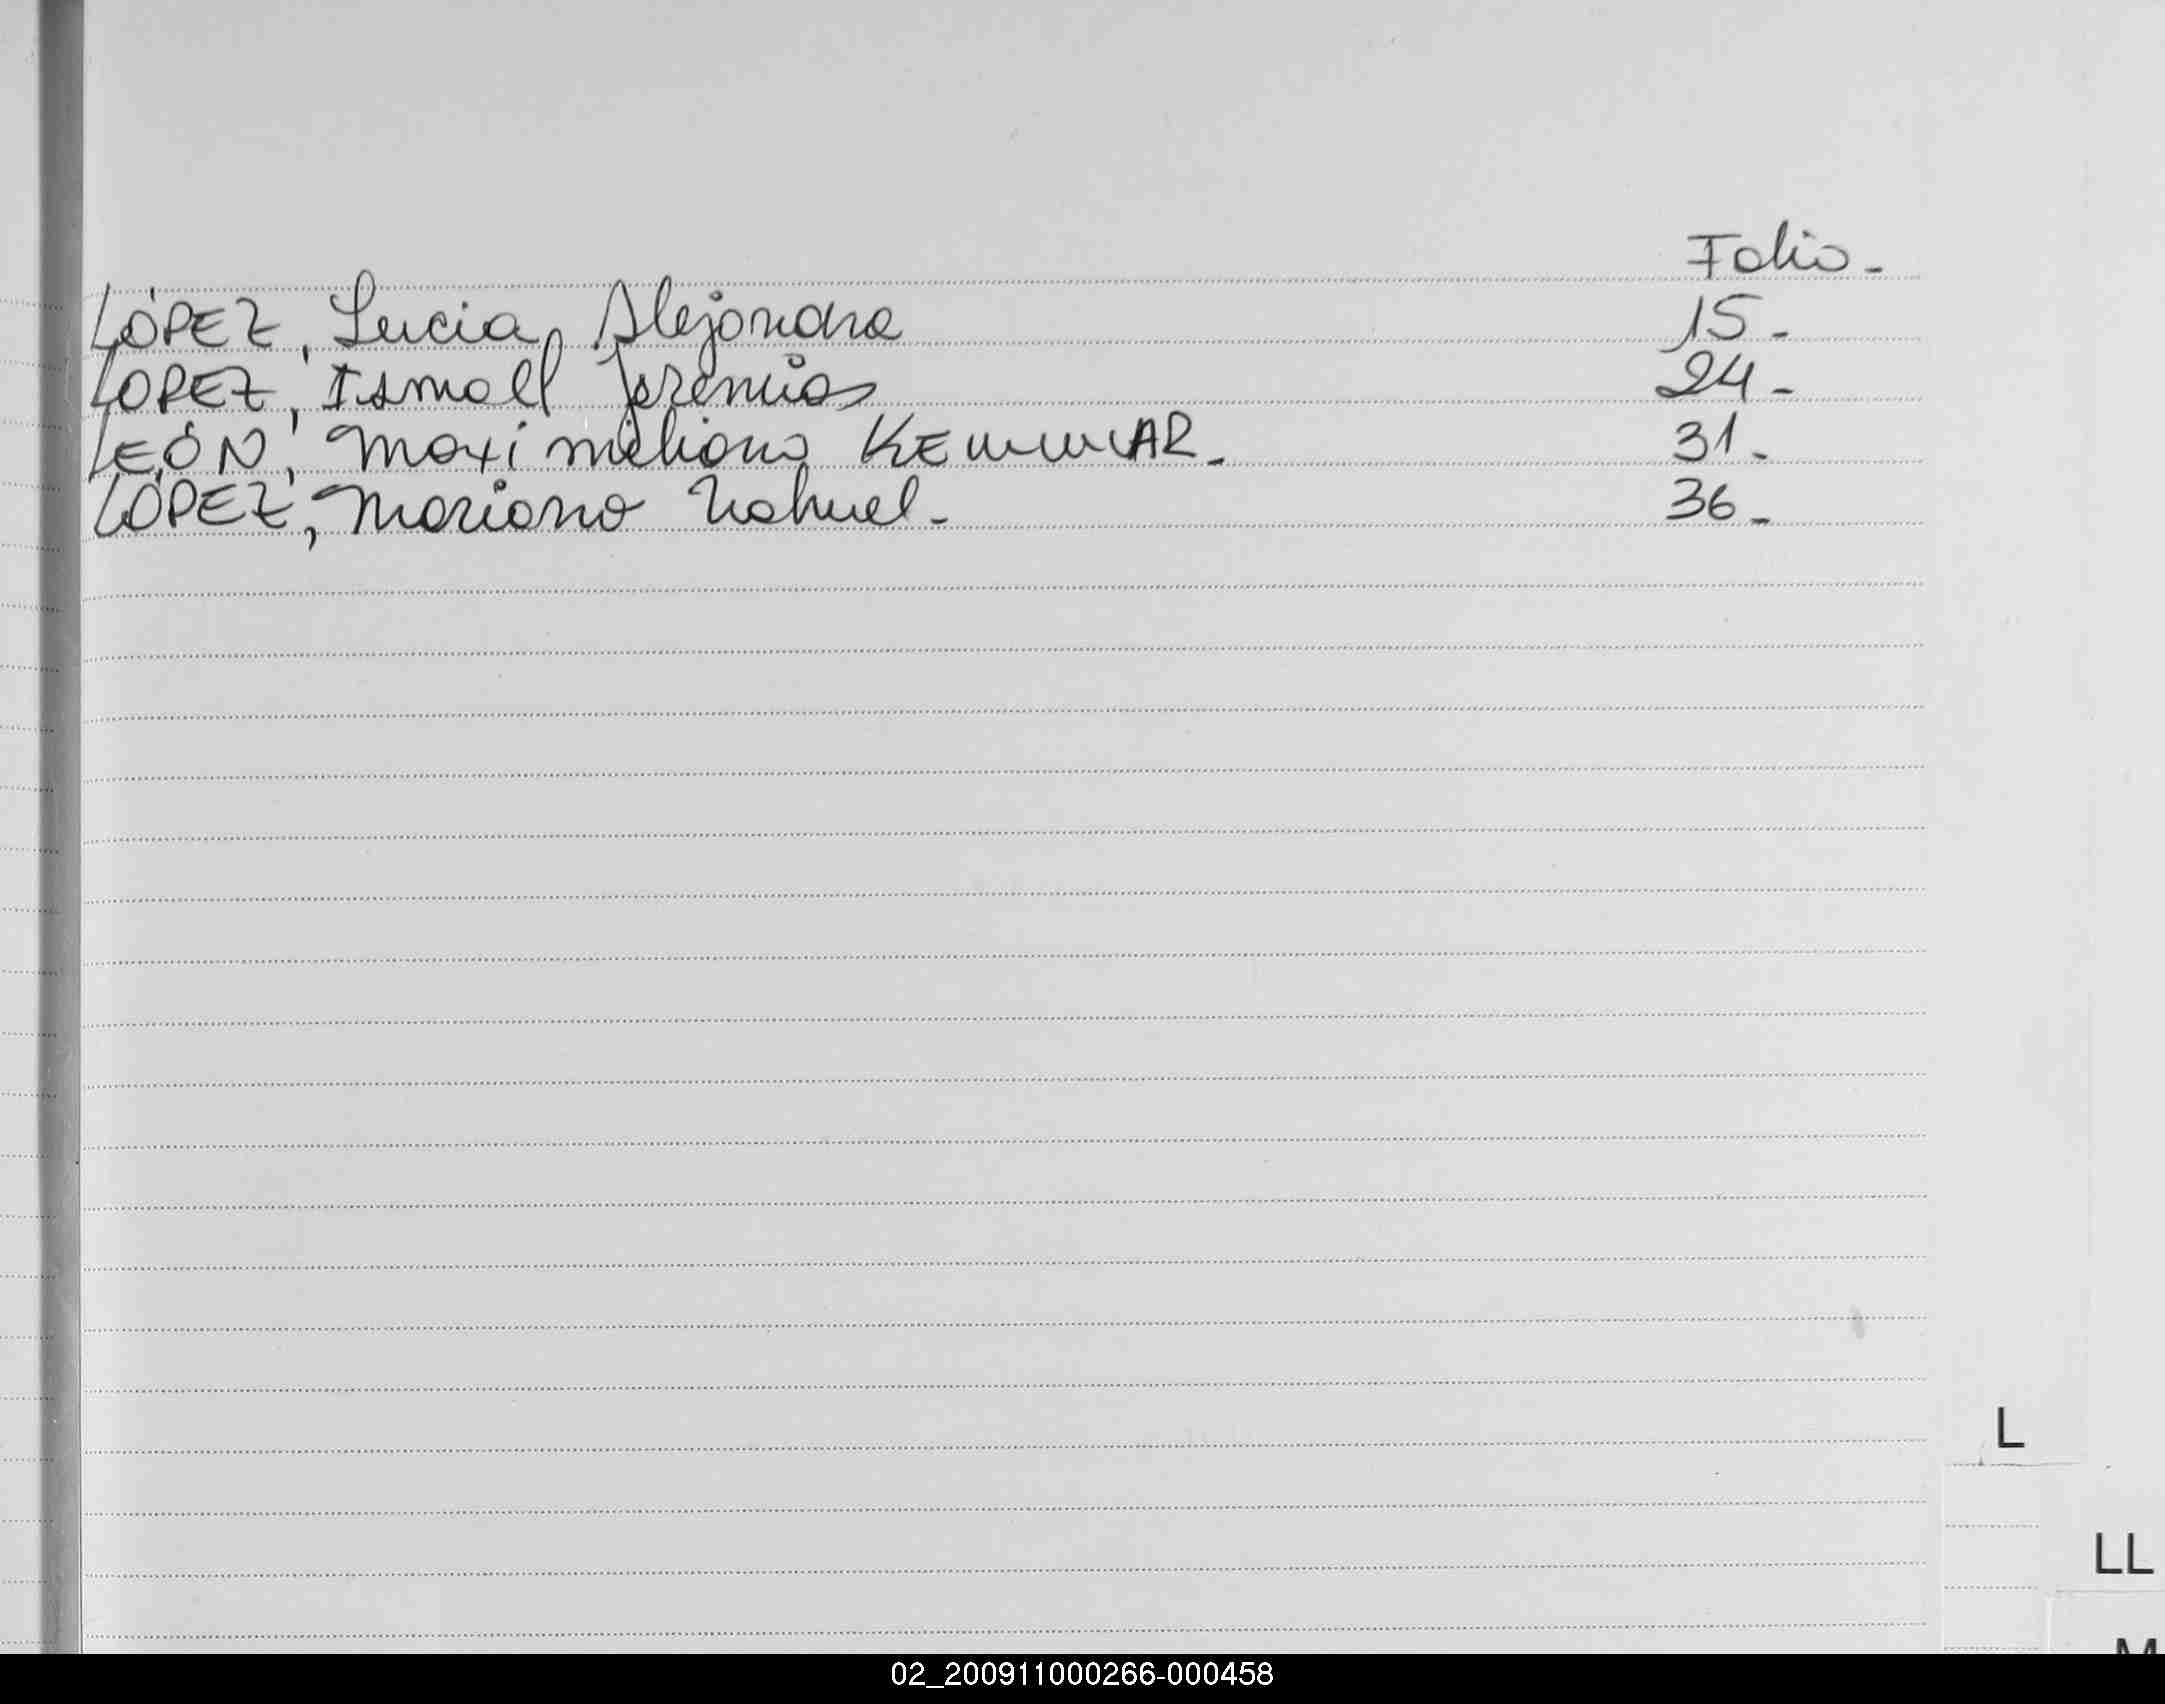 Folio-
LÓPEZ, Lucia Alejandra 15-
LOPEZ, Ismael Jeremias 24-
LEÓN, Maximiliano 31-
LÓPEZ, Mariano Nahuel- 36-
L
LL
M
02_200911000266-000458